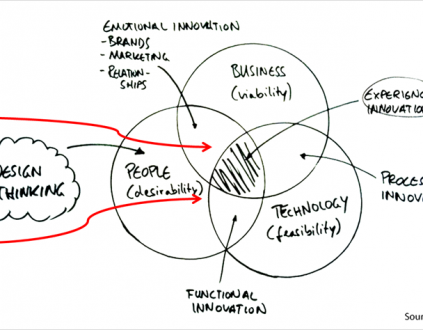 EMOTIONAL INNOVATION
- BRANDS
- MARKETING
- RELATION-
SHIPS
BUSINESS
(viability)
EXPERIENC
INNOVATION
DESIGN
THINKING
PEOPLE
(desirability)
PROCES
INNOV
TECHNOLOGY
(feasibility)
FUNCTIONAL
INNOVATION
Sour